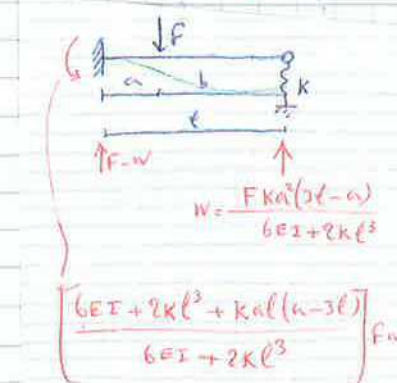 F
a b K
ℓ
F-W
W = FKa²(3ℓ-a) / 6EI+2Kℓ³
[6EI+2Kℓ³+Kaℓ(a-3ℓ) / 6EI+2Kℓ³] Fa